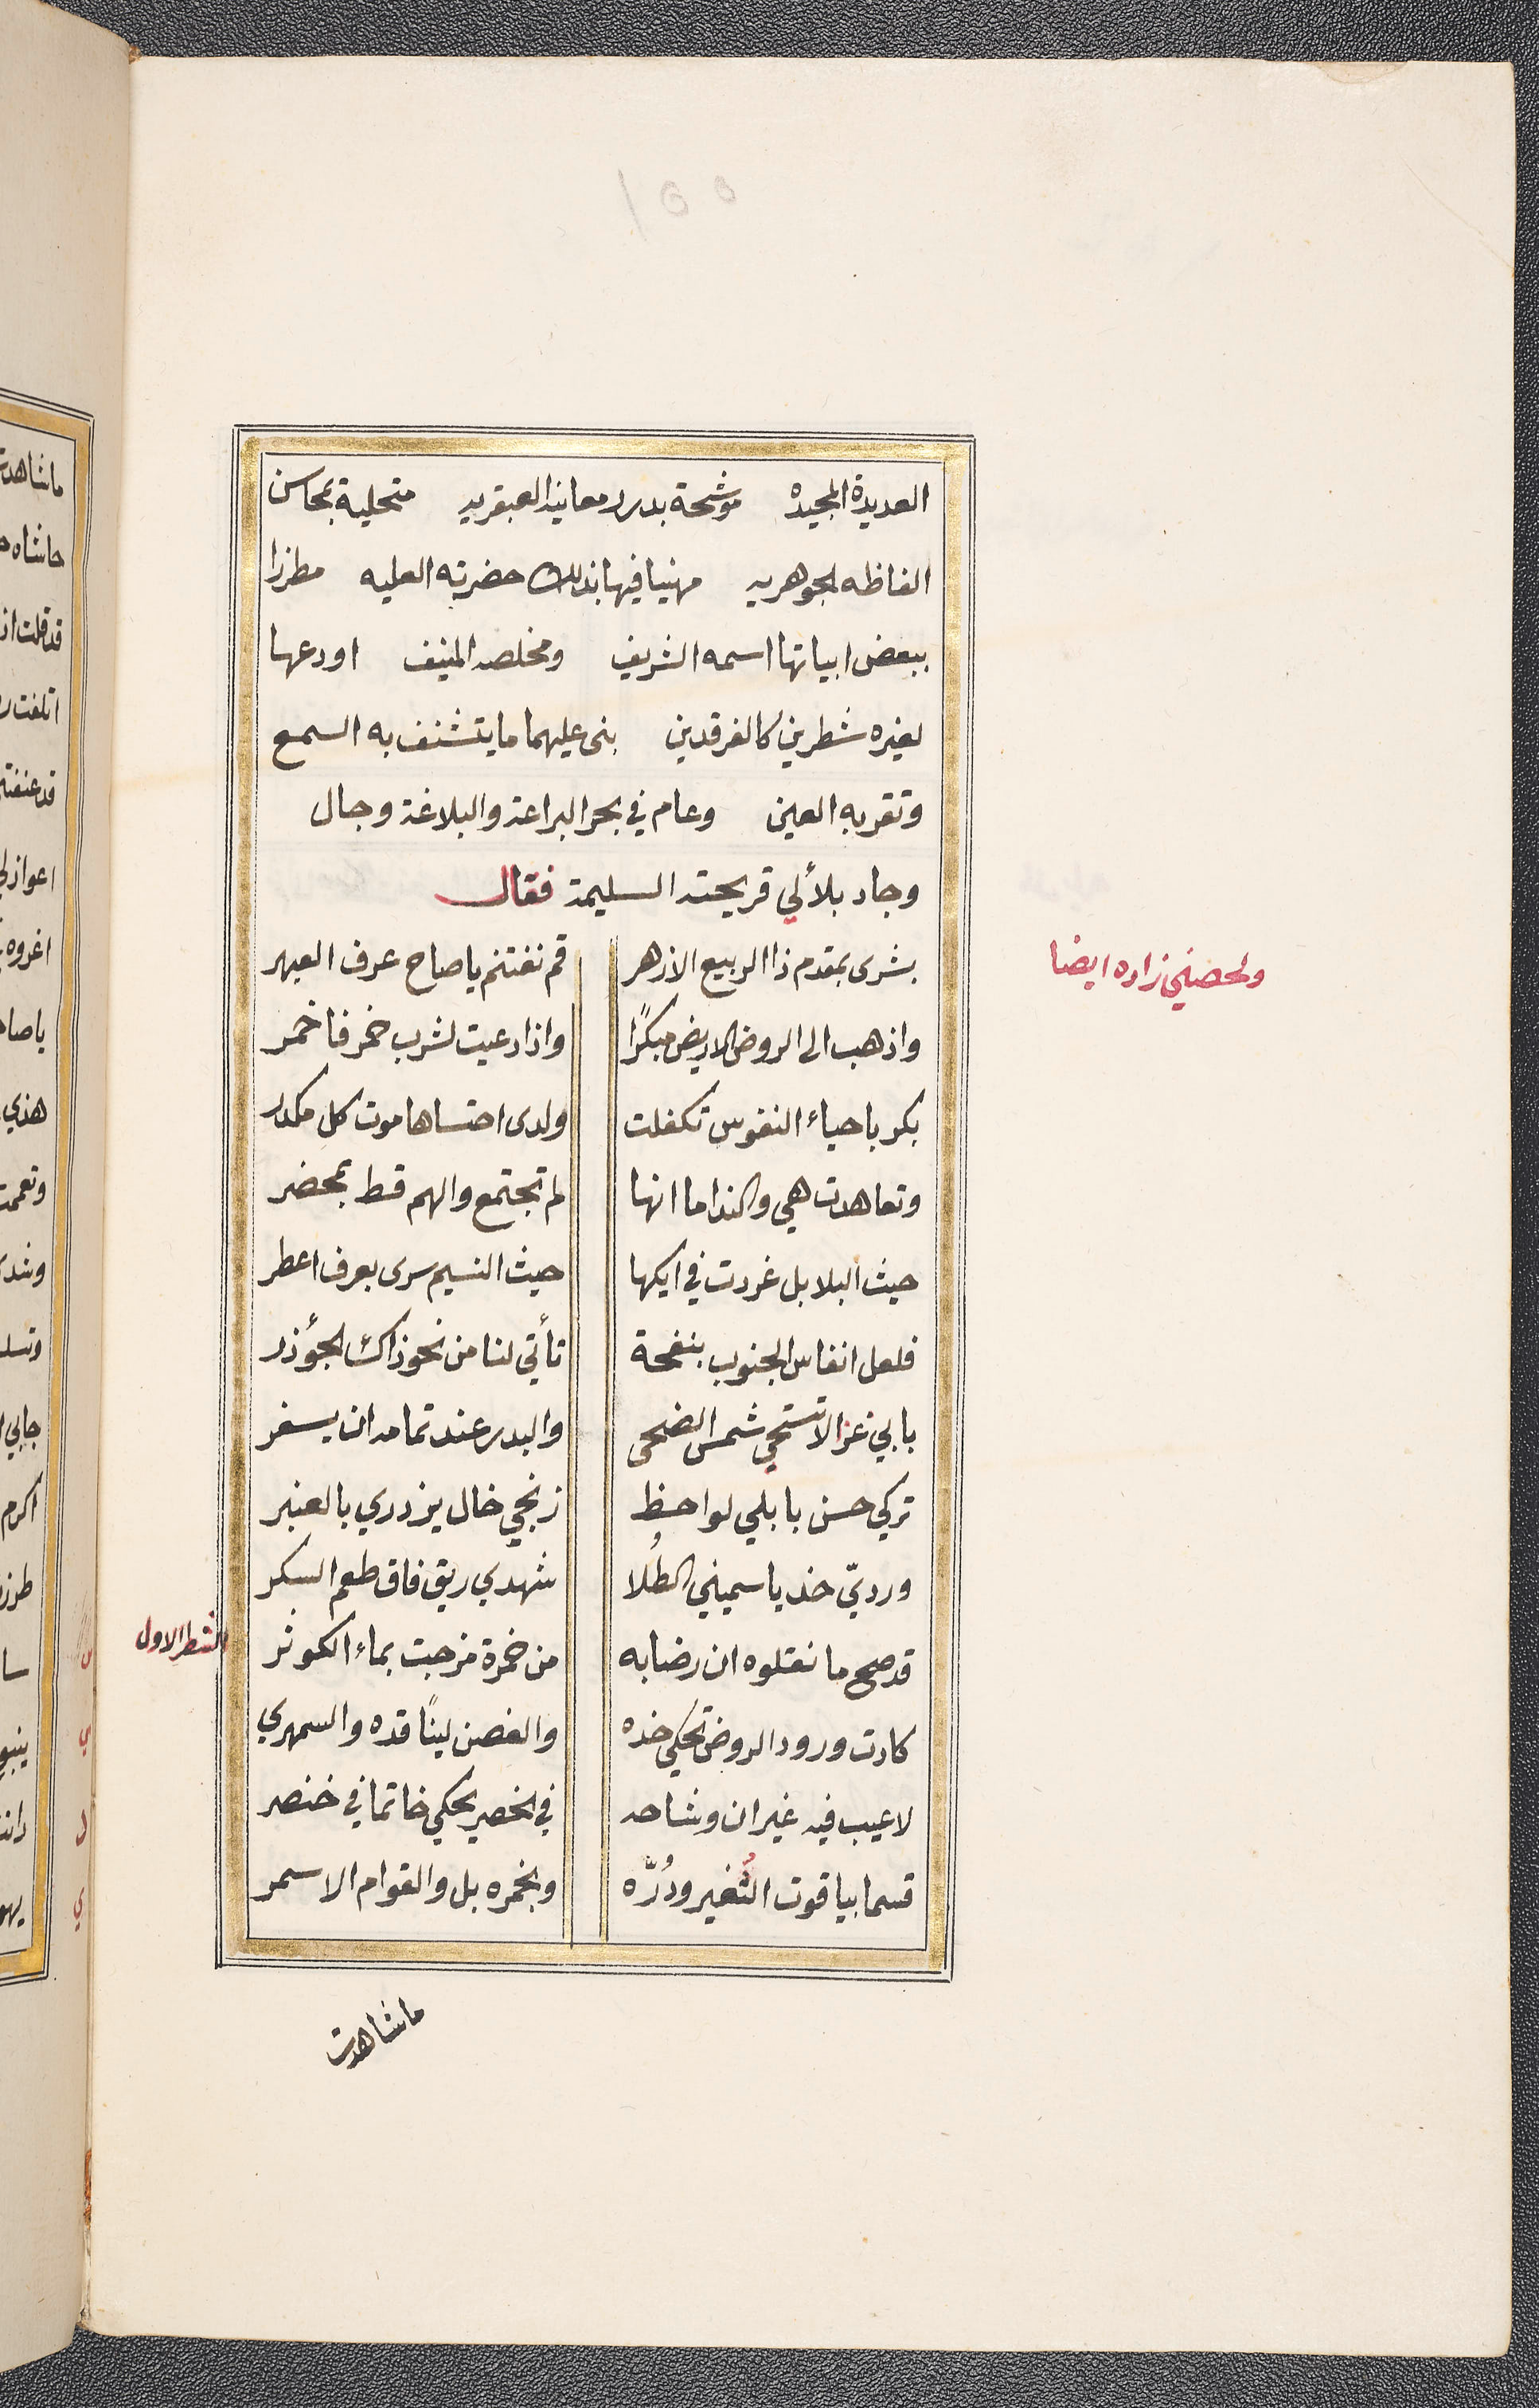 ١٥٥
العديدة المجيده موشحة بدرر معانيه العبقريه متحلية بمحاسن
الفاظه الجوهريه مهنيا فيها بذلك حضرته العليه مطرزا
ببعض ابياتها اسمه الشريف ومخلصه المنيف اودعها
لغيره شطرين كالفرقدين بنى عليهما ما يتشنف به السمع
وتقر به العين وعام في بحر البراعة والبلاغة وجال
وجاد بلألي قريحته السليمة فقال
ولحصني زاده ايضا
بشرى بمقدم ذا الربيع الازهر قم نغتنم يا صاح عرف العبهر
واذهب الى الروض الاريض مبكرًا واذا دعيت لشرب خمر فاخمر
بكر باحياء النفوس تكفلت ولدى احتساها موت كل مكدر
وتعاهدت هي والنداما انها لم تجتمع والهم قط بمحضر
حيث البلابل غردت في ايكها حيث النسيم سرى بعرف اعطر
فلعل انفاس الجنوب بنفحة تأتي لنا من نحو ذاك الجؤذر
بابي غزالا تستحي شمس الضحى والبدر عند تمامه ان يسفر
تركي حسن بابلي لواحظ زنجي خال يزدري بالعنبر
ورديّ خد ياسميني الطُلا شهدي ريق فاق طعم السكر
قد صح ما نقلوه ان رضابه من خمرة مزجت بماء الكوثر
الشطر الاول
كادت ورود الروض تحكي خده والغصن لينًا قده والسمهري
لا عيب فيه غير ان وشاحه في الخصر يحكي خاتما في خنصر
قسما بياقوت الثُغير ودُرّه وبخمره بل والقوام الاسمر
ما شاهدت